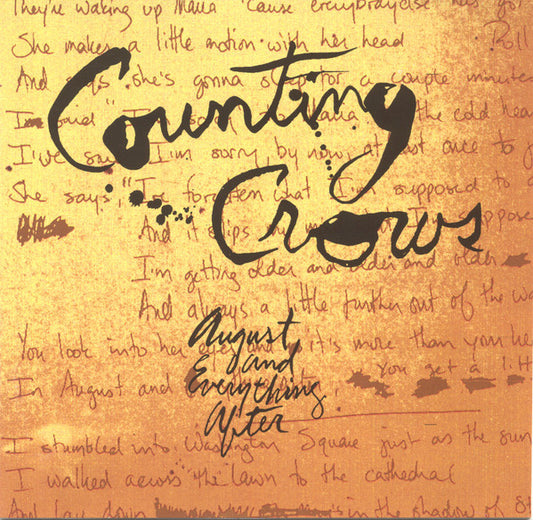 They're waking up Maria 'cause everybody else has go
She makes a little motion with her head
Roll
And says she's gonna sleep for a couple minutes
Counting
I'm said I'm the cold hea
I've sa I'm sorry by now, at once to
She says, "I've forgotten what I'm supposed to
Crows
And it slips my I'm suppose
I'm getting older and older and older
And always a little further out of the wa
August
and
Everything
After
You look into her it's more than you he
In August and you get a litt
I stumbled into Washington Square just as the sun
I walked across the lawn to the cathedral
And lay down in the shadow of St